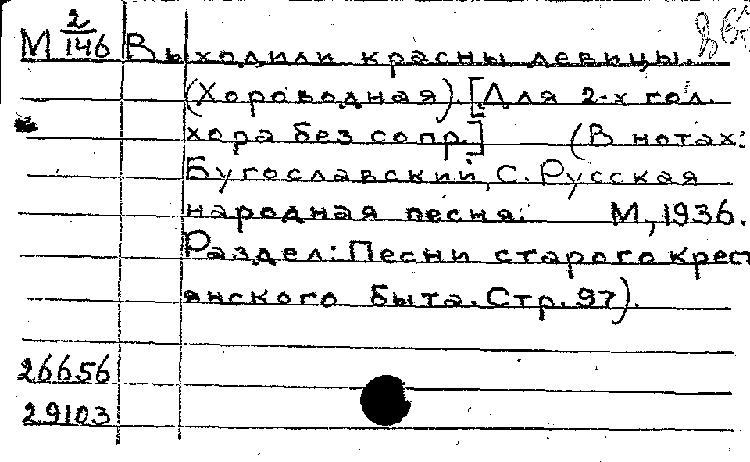 М 2/146 Выходили красны девицы.
(Хороводная). [Для 2-х гол.
хора без сопр.] (В нотах:
Бугославский, С. Русская
народная песня. М, 1936.
Раздел: Песни старого крест
янского быта. Стр. 97).
26656
29103